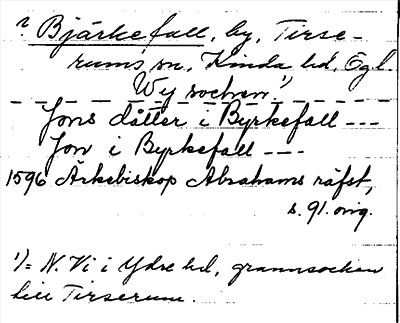 ? Bjärkefall, by, Tirse-
rums sn, Kinda hd, Ögl.
Wij sochen.¹)
Jons dåtter i Byrkefall ---
Jon i Byrkefall ---
1596 Ärkebiskop Abrahams räfst,
s. 91. orig.
¹)= N. Vi i Ydre hd, grannsocken
till Tirserum.